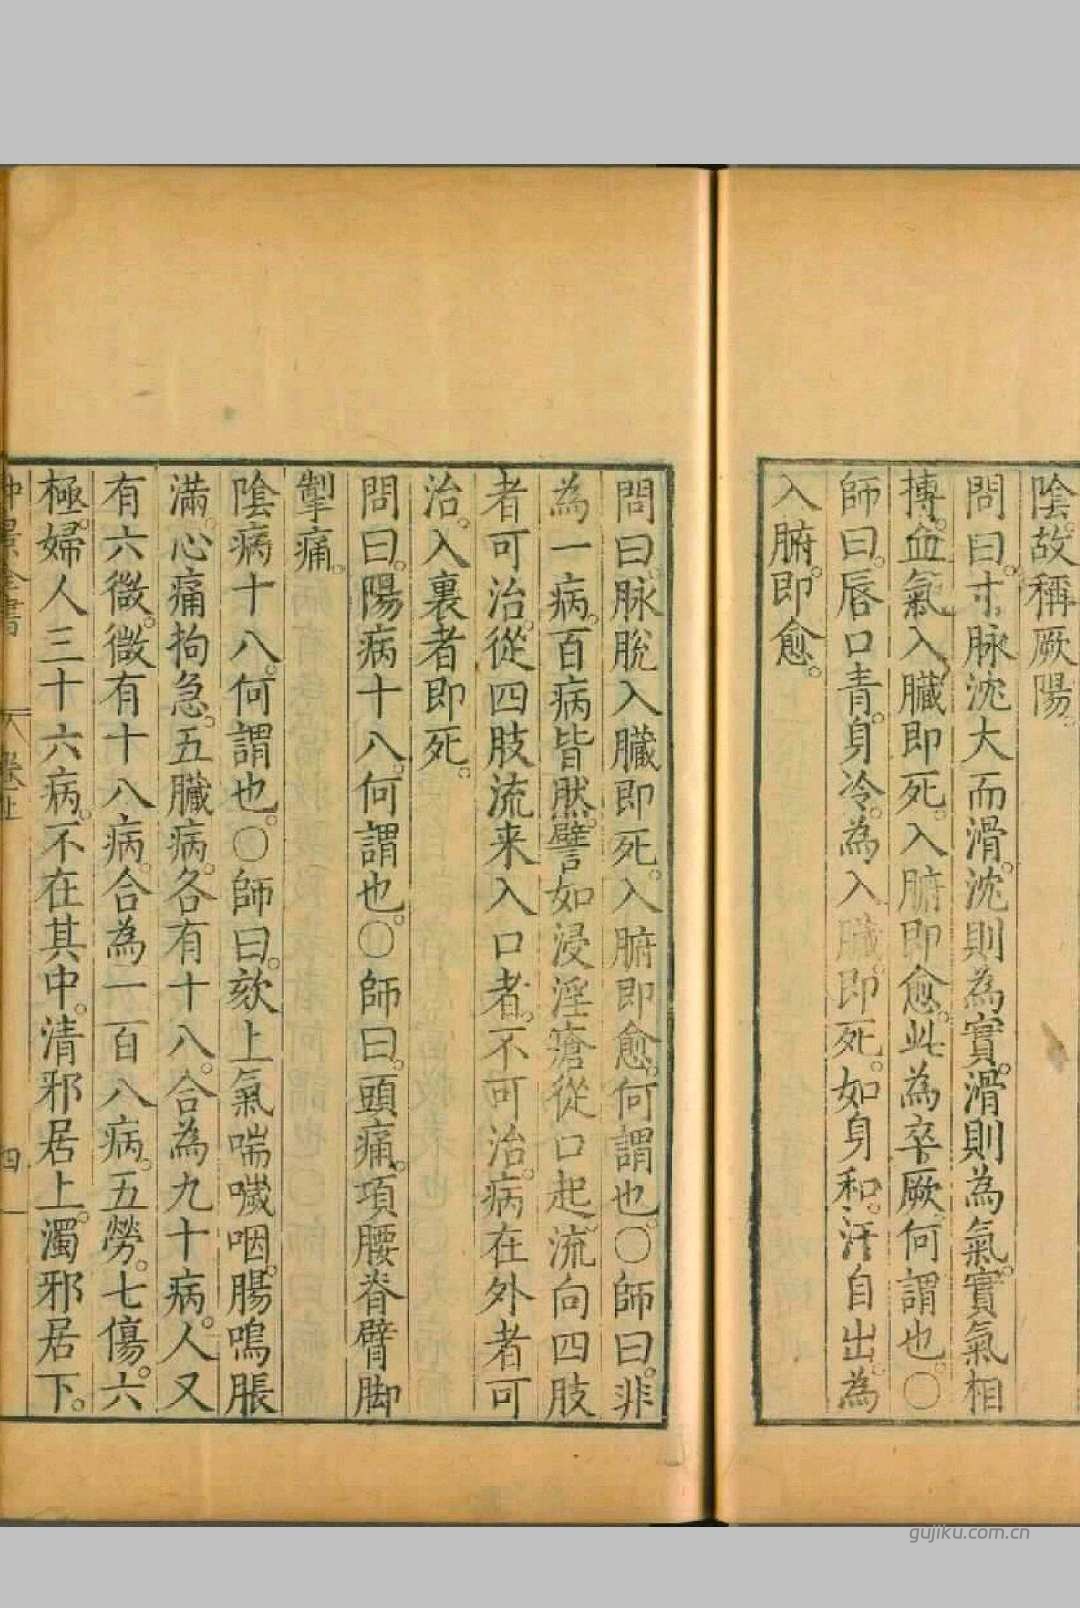 陰。故稱厥陽。
問曰。寸脉沈大而滑。沈則為實。滑則為氣。實氣相
搏。血氣入臟即死。入腑即愈。此為卒厥何謂也。〇
師曰。唇口青。身冷。為入臟。即死。如身和。汗自出。為
入腑。即愈。
問曰。脉脫入臟即死。入腑即愈。何謂也。〇師曰。非
為一病。百病皆然。譬如浸淫瘡從口起。流向四肢
者可治。從四肢流来入口者。不可治。病在外者可
治。入裏者即死。
問曰。陽病十八。何謂也。〇師曰。頭痛。項腰脊臂脚
掣痛。
陰病十八。何謂也。〇師曰。欬上氣喘噦咽。腸鳴脹
滿。心痛拘急。五臟病。各有十八。合為九十病。人又
有六微。微有十八病。合為一百八病。五勞。七傷。六
極。婦人三十六病。不在其中。清邪居上。濁邪居下。
仲景全書 卷 四
gujiku.com.cn